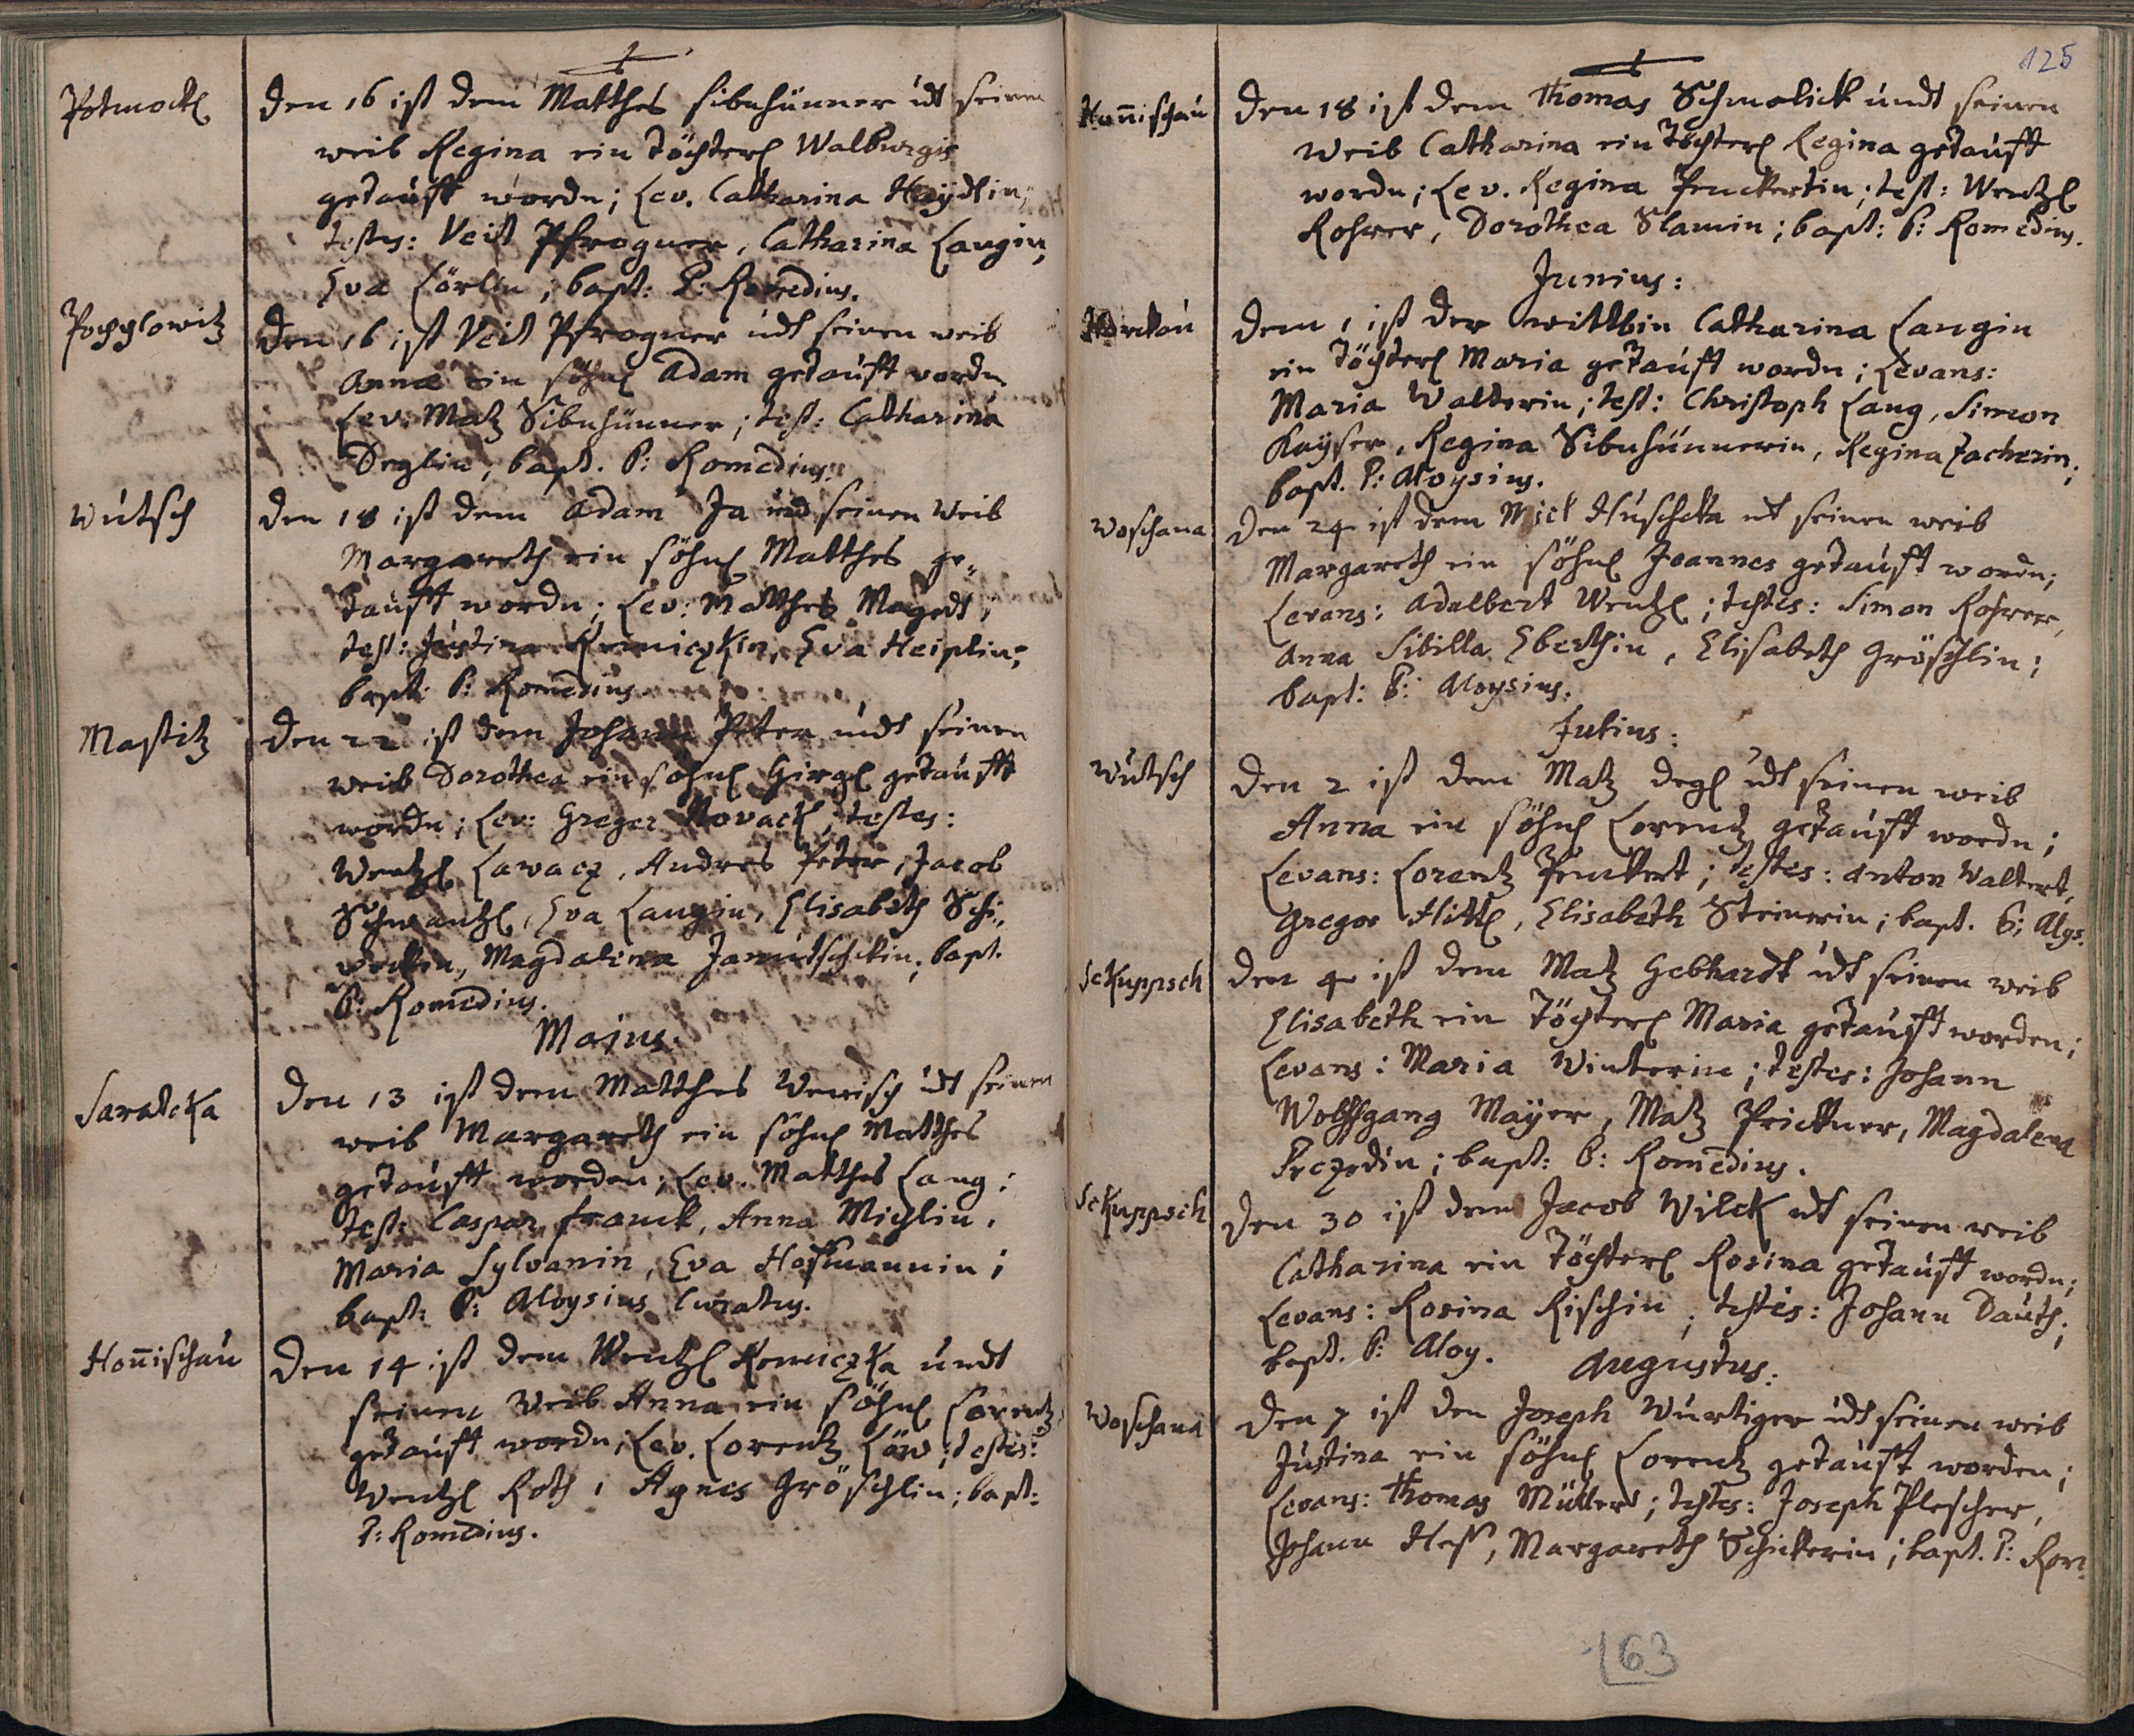 Potmockl
den 16 ist dem Matthes sibnhünner udt seinem
weib Regina ein töchterl Walburgis
getaufft wordn; Lev. Catharina Haydlin;
testes: Veit Pfrogner, Catharina Langin,
Eva Cörlin; bapt: P: Romedius.
Pochlowitz
den 16 ist Veit Pfrogner udt seinen weib
Anna ein söhnl Adam getaufft wordn
Lev: Matz Sibnhünner; test: Catharina
Deglin, bapt. P: Romedius.
Wutsch
den 18 ist dem Adam Ja und seinen Weib
Margareth ein söhnl Matthes ge„
taufft wordn; Lev: Matthes Magedt,
test: Justina Remiczkin, Eva Heiplin;
bapt: P: Romedius
Mastitz
den 22 ist dem Johann Peter undt seinen
weib Dorothea ein söhnl Girgl getaufft
wordn; Lev: Greger Novack; testes:
Wentzl Lawacz, Andres Peter, Jacob
Schwantzl, Eva Langin, Elisabeth Schi„
weckin, Magdalena Janutschckin; bapt.
P: Romedius.
Majus.
Saratcka
den 13 ist dem Matthes Wenisch udt seinen
weib Margareth ein söhnl Matthes
getaufft worden; Lev. Matthes Lang;
test: Caspar franck, Anna Michlin,
Maria Sylvanin, Eva Hoffmannin;
bapt: P: Aloysius Curatus.
Honischau
den 14 ist dem Wentzl Remiczka undt
seinem Weib Anna ein söhnl Lorentz
getaufft wordn, Lev. Lorentz Löw; testes:
Wentzl Roth, Agnes Gröschlin; bapt:
P: Romedius.
125
Honischau
den 18 ist dem Thomas Schmolick undt seinen
Weib Catharina ein töchterl Regina getaufft
wordn; Lev. Regina Penckertin; test: Wentzl
Rohrer, Dorothea Slamin; bapt: P: Romedius.
Junius:
Horckau
dem 1 ist der wittbin Catharina Langin
ein töchterl Maria getaufft wordn; Levans:
Maria Walterin; test: Christoph Lang, Simon
Kayser, Regina Sibnhünnerin, Regina Zacherin;
bapt. P: Aloysius.
Woschana
den 24 ist dem Mick Huschcka udt seinen weib
Margareth ein söhnl Joannes getaufft wordn;
Levans: Adalbert Wentzl; testes: Simon Rohrer,
Anna Sibilla Eberthin, Elisabeth Gröschlin;
bapt: P: Aloysius.
Julius:
Wutsch
den 2 ist dem Matz Degl udt seinen weib
Anna ein söhnl Lorentz getaufft wordn;
Levans: Lorentz Penckert; testes: Anton Waltert,
Gregor Hittl, Elisabeth Steinerin; bapt. P: Alys.
Sckuppsch
den 4 ist dem Matz Gebhardt udt seinen weib
Elisabeth ein töchterl Maria getaufft worden;
Levans: Maria Winterin; testes: Johann
Wolffgang Mayer, Matz Prickner, Magdalena
Prezedin; bapt: P: Romedius.
Sckuppsch
den 30 ist dem Jacob Wilck udt seinen weib
Catharina ein töchterl Rosina getaufft wordn;
Levans: Rosina Rischin; testes: Johann Dauth;
bapt. P: Aloy.
Augustus:
Woschana
den 7 ist den Joseph Wurtiger udt seinen weib
Justina ein söhnl Lorentz getaufft worden;
Levans: Thomas Müllers; testes: Joseph Plescher,
Johann Hess, Margareth Schickerin; bapt. P: Rom.
163